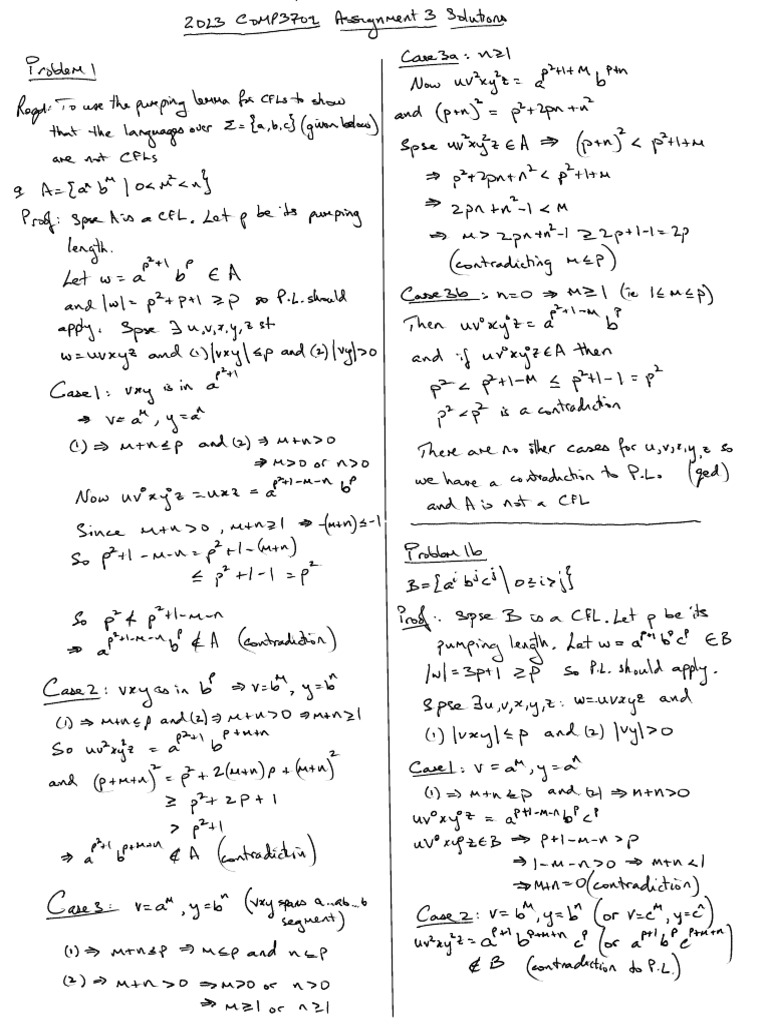 2023 COMP3702 Assignment 3 Solutions
Problem 1
Reqd: To use the pumping lemma for CFLs to show
that the languages over Σ={a,b,c} (given below)
are not CFLs
a A={aⁿ bᵐ | 0<m²<n}
Proof: Spse A is a CFL. Let p be its pumping
length.
Let w = a^{p²+1} b^p ∈ A
and |w| = p²+p+1 ≥ p so P.L. should
apply. Spse ∃ u,v,x,y,z st
w=uvxyz and (1) |vxy| ≤p and (2) |vy|>0
Case 1: vxy is in a^{p²+1}
⇒ v=a^m, y=a^n
(1) ⇒ m+n≤p and (2) ⇒ m+n>0
⇒ m>0 or n>0
Now uv⁰xy⁰z = uxz = a^{p²+1-m-n} b^p
Since m+n>0, m+n≥1 ⇒ -(m+n)≤-1
So p²+1-m-n = p²+1-(m+n)
≤ p²+1-1 = p²
So p² ≮ p²+1-m-n
⇒ a^{p²+1-m-n} b^p ∉ A (contradiction)
Case 2: vxy is in b^p ⇒ v=b^m, y=b^n
(1) ⇒ m+n≤p and (2) ⇒ m+n>0 ⇒ m+n≥1
So uv²xy²z = a^{p²+1} b^{p+m+n}
and (p+m+n)² = p²+2(m+n)p+(m+n)²
≥ p²+2p+1
> p²+1
⇒ a^{p²+1} b^{p+m+n} ∉ A (contradiction)
Case 3: v=a^m, y=b^n (vxy spans a...ab...b
segment)
(1) ⇒ m+n≤p ⇒ m≤p and n≤p
(2) ⇒ m+n>0 ⇒ m>0 or n>0
⇒ m≥1 or n≥1
Case 3a: n≥1
Now uv²xy²z = a^{p²+1+m} b^{p+n}
and (p+n)² = p²+2pn+n²
Spse uv²xy²z ∈ A ⇒ (p+n)² < p²+1+m
⇒ p²+2pn+n² < p²+1+m
⇒ 2pn+n²-1 < m
⇒ m > 2pn+n²-1 ≥ 2p+1-1 = 2p
(contradicting m≤p)
Case 3b: n=0 ⇒ m≥1 (ie 1≤m≤p)
Then uv⁰xy⁰z = a^{p²+1-m} b^p
and if uv⁰xy⁰z ∈ A then
p² < p²+1-m ≤ p²+1-1 = p²
p² < p² is a contradiction
There are no other cases for u,v,x,y,z so
we have a contraduction to P.L. (qed)
and A is not a CFL
Problem 1b
B={a^i b^j c^j | 0≤i>j}
Proof: Spse B is a CFL. Let p be its
pumping length. Let w = a^{p+1} b^p c^p ∈ B
|w| = 3p+1 ≥ p so P.L. should apply.
Spse ∃u,v,x,y,z: w=uvxyz and
(1) |vxy| ≤p and (2) |vy|>0
Case 1: v=a^m, y=a^n
(1) ⇒ m+n≤p and (2) ⇒ m+n>0
uv⁰xy⁰z = a^{p+1-m-n} b^p c^p
uv⁰xy⁰z ∈ B ⇒ p+1-m-n>p
⇒ 1-m-n>0 ⇒ m+n<1
⇒ m+n=0 (contradiction)
Case 2: v=b^m, y=b^n (or v=c^m, y=c^n)
uv²xy²z = a^{p+1} b^{p+m+n} c^p (or a^{p+1} b^p c^{p+m+n})
∉ B (contradiction to P.L.)